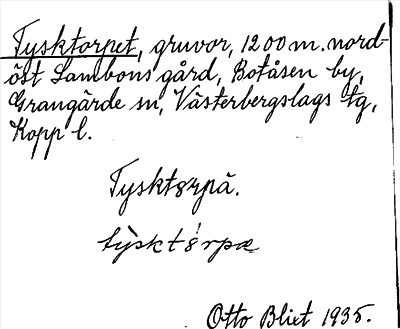 Tysktorpet, gruvor, 1200 m. nord-
öst Lambons gård, Botåsen by,
Grangärde sn, Västerbergslags tg,
Kopp l.
Tysktørpä.
Otto Blixt 1935.